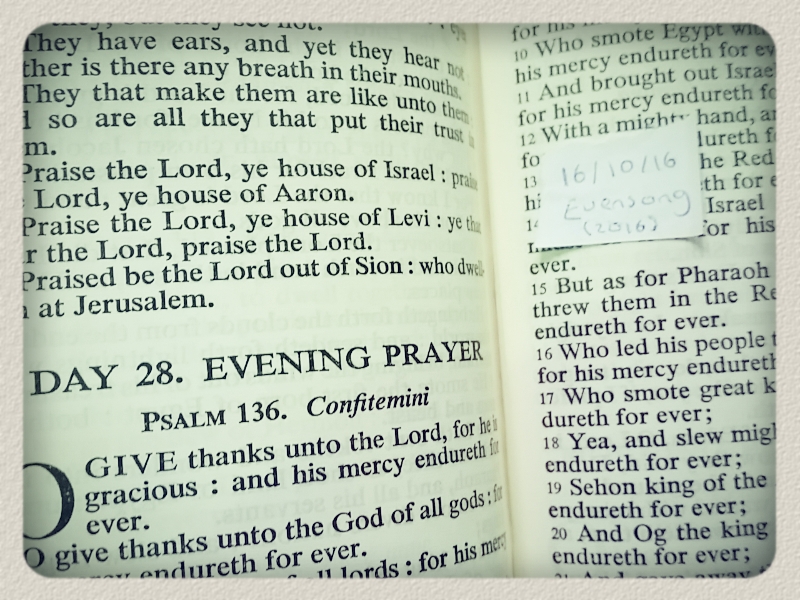 They have ears, and yet they hear not
ther is there any breath in their mouths.
They that make them are like unto them
so are all they that put their trust
m.
Praise the Lord, ye house of Israel : praise
Lord, ye house of Aaron.
Praise the Lord, ye house of Levi : ye that
r the Lord, praise the Lord.
Praised be the Lord out of Sion : who dwell-
at Jerusalem.
DAY 28. EVENING PRAYER
PSALM 136. Confitemini
O GIVE thanks unto the Lord, for he is
gracious : and his mercy endureth for
ever.
O give thanks unto the God of all gods : for
endureth for ever.
lords : for his mercy
10 Who smote Egypt with
his mercy endureth for ev
11 And brought out Israe
for his mercy endureth fo
12 With a mighty hand, an
fo lureth fo
13 he Red
hi th for e
14 Israel
for his
ever.
16/10/16
Evensong
(2016)
15 But as for Pharaoh
threw them in the Re
endureth for ever.
16 Who led his people t
for his mercy endureth
17 Who smote great k
dureth for ever;
18 Yea, and slew migh
endureth for ever;
19 Sehon king of the
endureth for ever;
20 And Og the king
endureth for ever;